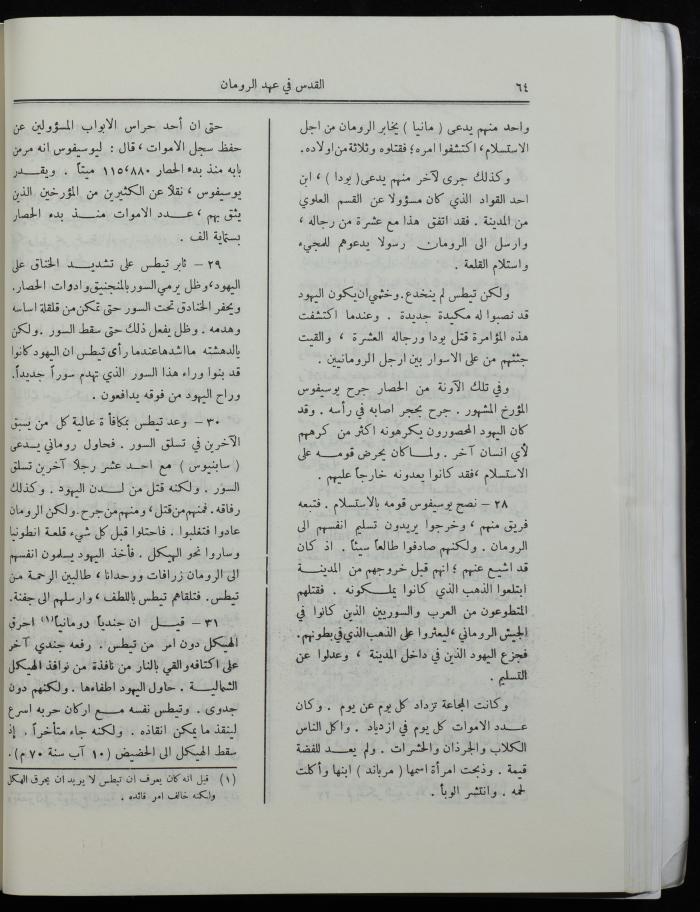 ٦٤
القدس في عهد الرومان
واحد منهم يدعى ( مانيا ) يخابر الرومان من اجل
الاستسلام، اكتشفوا امره؛ فقتلوه وثلاثة من اولاده.
وكذلك جرى لآخر منهم يدعى( يودا ) ، ابن
احد القواد الذي كان مسؤولا عن القسم العلوي
من المدينة . فقد اتفق هذا مع عشرة من رجاله ،
وارسل الى الرومان رسولا يدعوهم للمجيء
واستلام القلعة .
ولكن تيطس لم ينخدع . وخشي ان يكون اليهود
قد نصبوا له مكيدة جديدة . وعندما اكتشفت
هذه المؤامرة قتل يودا ورجاله العشرة ، والقيت
جثثهم من على الاسوار بين ارجل الرومانيين .
وفي تلك الآونة من الحصار جرح يوسيفوس
المؤرخ المشهور . جرح بحجر اصابه في رأسه . وقد
كان اليهود المحصورون يكرهونه اكثر من كرههم
لأي انسان آخر . ولما كان يحرض قومه على
الاستسلام ،فقد كانوا يعدونه خارجاً عليهم .
٢٨ – نصح يوسيفوس قومه بالاستسلام . فتبعه
فريق منهم ، وخرجوا يريدون تسليم انفسهم الى
الرومان . ولكنهم صادفوا طالعاً سيئاً . اذ كان
قد اشيع عنهم ؛ انهم قبل خروجهم من المدينة
ابتلعوا الذهب الذي كانوا يملكونه . فقتلهم
المتطوعون من العرب والسوريين الذين كانوا في
الجيش الروماني ، ليعثروا على الذهب الذي في بطونهم.
فجزع اليهود الذين في داخل المدينة ، وعدلوا عن
التسليم .
وكانت المجاعة تزداد كل يوم عن يوم . وكان
عدد الاموات كل يوم في ازدياد . واكل الناس
الكلاب والجرذان والحشرات . ولم يعد للفضة
قيمة . وذبحت امرأة اسمها ( مرباند ) ابنها وأكلت
لحمه . وانتشر الوبأ .
حتى ان أحد حراس الابواب المسؤولين عن
حفظ سجل الاموات ، قال : ليوسيفوس انه مر من
بابه منذ بدء الحصار ١١٥،٨٨٠ ميتاً . ويقدر
يوسيفوس ، نقلاً عن الكثيرين من المؤرخين الذين
يثق بهم ، عدد الاموات منذ بدء الحصار
بستماية الف .
٢٩ – ثابر تيطس على تشديد الخناق على
اليهود،وظل يرمي السور بالمنجنيق وادوات الحصار.
ويحفر الخنادق تحت السور حتى تمكن من قلقلة اساسه
وهدمه . وظل يفعل ذلك حتى سقط السور . ولكن
يالدهشته ما اشدها عندما رأى تيطس ان اليهود كانوا
قد بنوا وراء هذا السور الذي تهدم سوراً جديداً.
وراح اليهود من فوقه يدافعون .
٣٠ – وعد تيطس بمكافأة عالية كل من يسبق
الآخرين في تسلق السور . فحاول روماني يدعى
( سابنيوس ) مع احد عشر رجلا آخرين تسلق
السور . ولكنه قتل من لدن اليهود . وكذلك
رفاقه . فمنهم من قتل ، ومنهم من جرح. ولكن الرومان
عادوا فتغلبوا . فاحتلوا قبل كل شيء قلعة انطونيا
وساروا نحو الهيكل . فأخذ اليهود يسلمون انفسهم
الى الرومان زرافات ووحدانا ، طالبين الرحمة من
تيطس. فتلقاهم تيطس باللطف ، وارسلهم الى جفنة.
٣١ – قيل ان جندياً رومانياً(١) احرق
الهيكل دون امر من تيطس . رفعه جندي آخر
على اكتافه والقي بالنار من نافذة من نوافذ الهيكل
الشمالية . حاول اليهود اطفاءها . ولكنهم دون
جدوى . وتيطس نفسه مع اركان حربه اسرع
لينقذ ما يمكن انقاذه . ولكنه جاء متأخراً . إذ
سقط الهيكل الى الحضيض (١٠ آب سنة ٧٠ م).
(١) قيل انه كان يعرف ان تيطس لا يريد ان يحرق الهيكل
ولكنه خالف امر قائده .